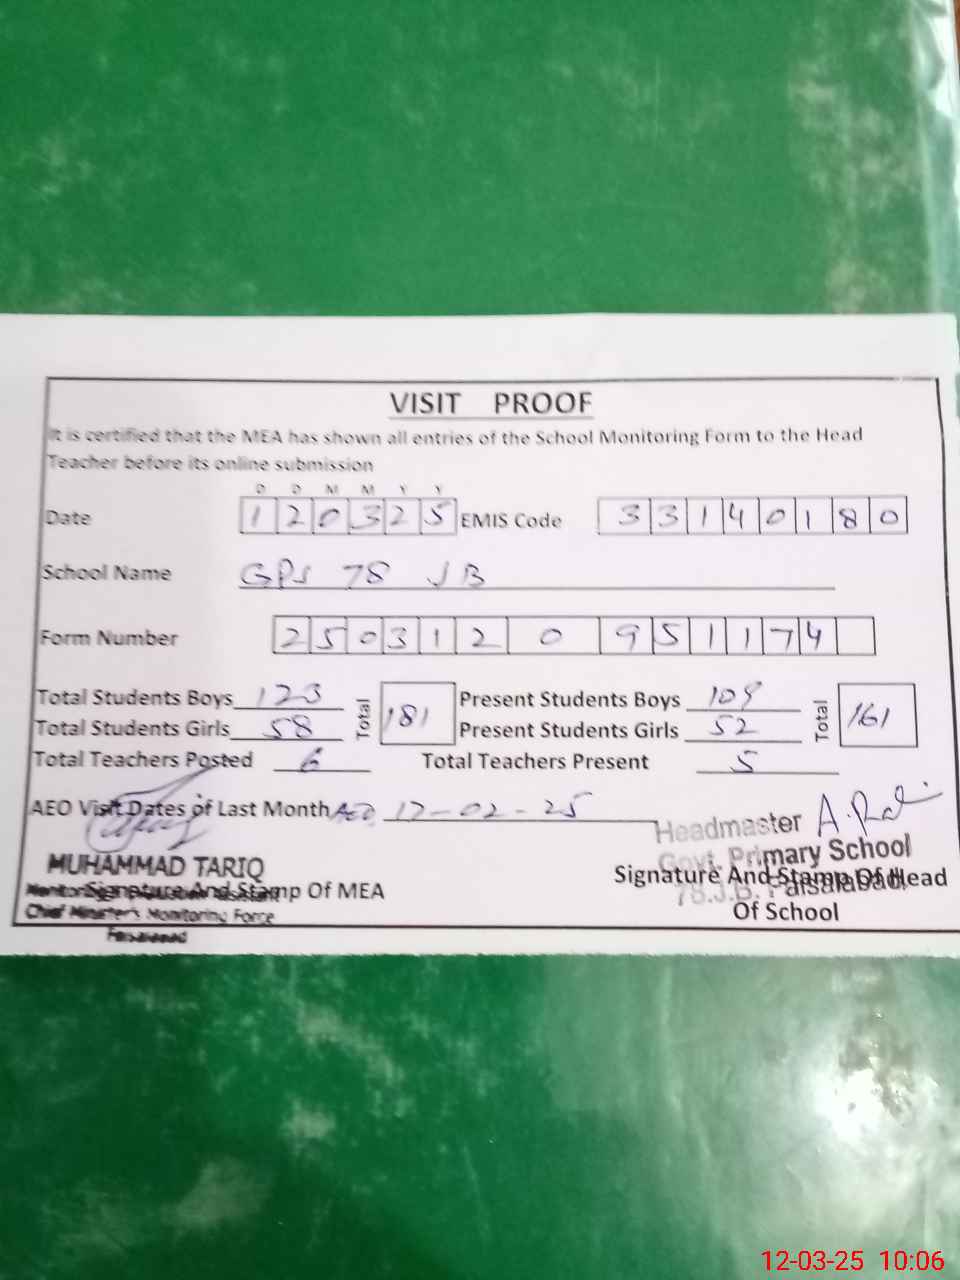 VISIT PROOF
It is certified that the MEA has shown all entries of the School Monitoring Form to the Head
Teacher before its online submission
D D M M Y Y
Date 1 2 0 3 2 5 EMIS Code 3 3 1 4 0 1 8 0
School Name GPS 78 JB
Form Number 2 5 0 3 1 2 0 9 5 1 1 7 4
Total Students Boys 123 Total 181 Present Students Boys 109 Total 161
Total Students Girls 58 Present Students Girls 52
Total Teachers Posted 6 Total Teachers Present 5
AEO Visit Dates of Last Month AEO 17-02-25
Headmaster
Govt. Primary School
78.J.B. Faisalabad
MUHAMMAD TARIQ
Signature And Stamp Of MEA
Signature And Stamp Of Head
Of School
Chief Minister's Monitoring Force
Faisalabad
12-03-25 10:06